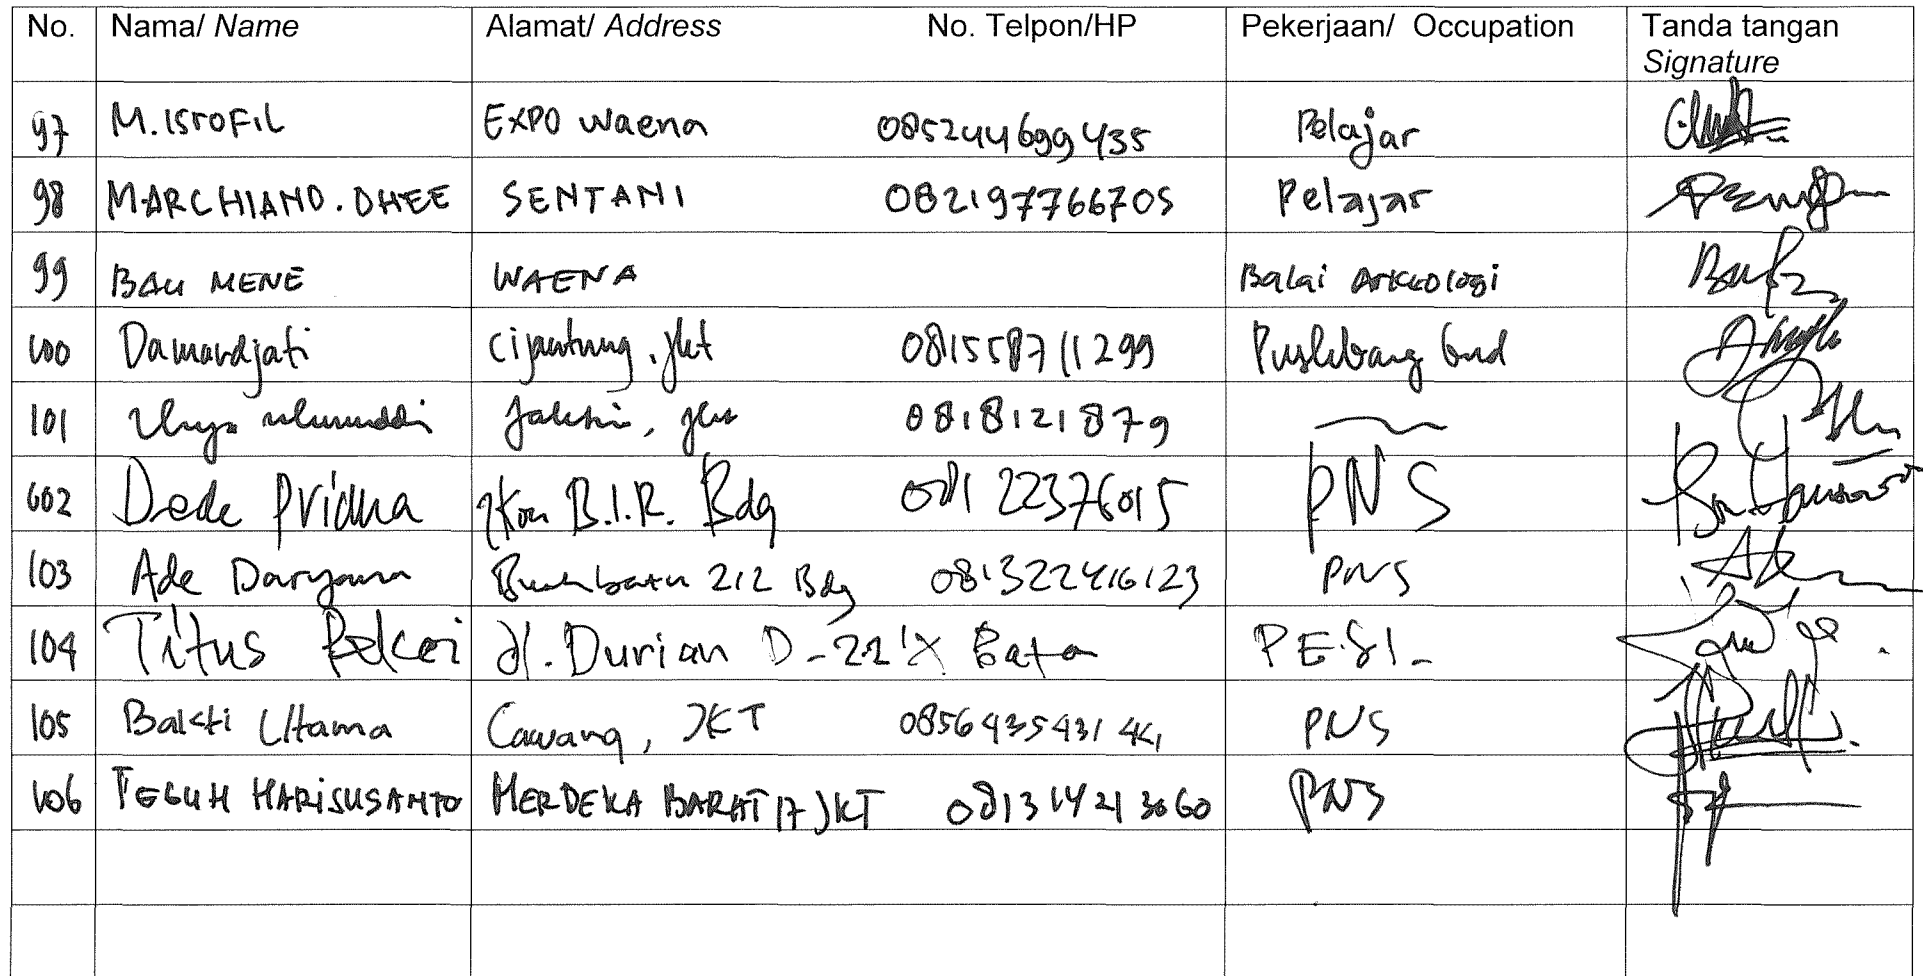 No. Nama/ Name Alamat/ Address No. Telpon/HP Pekerjaan/ Occupation Tanda tangan
Signature
97 M. ISTOFIL EXPO Waena 085244699435 Pelajar
98 MARCHIANO. DHEE SENTANI 082197766705 Pelajar
99 BAU MENE WAENA Balai Arkeologi
100 Damardjati Cipayung, jkt 081558711299 Puslitbang
101 0818121879
102 Dede Pridha B.I.R. Bdg 08122376015 PNS
103 Ade Daryana Buahbatu 212 Bdg 081322416123 PNS
104 Titus Jl. Durian D-22
105 Bakti Utama Cawang, JKT PNS
106 TEGUH HARISUSANTO MERDEKA BARAT 17 JKT 081314213060 PNS